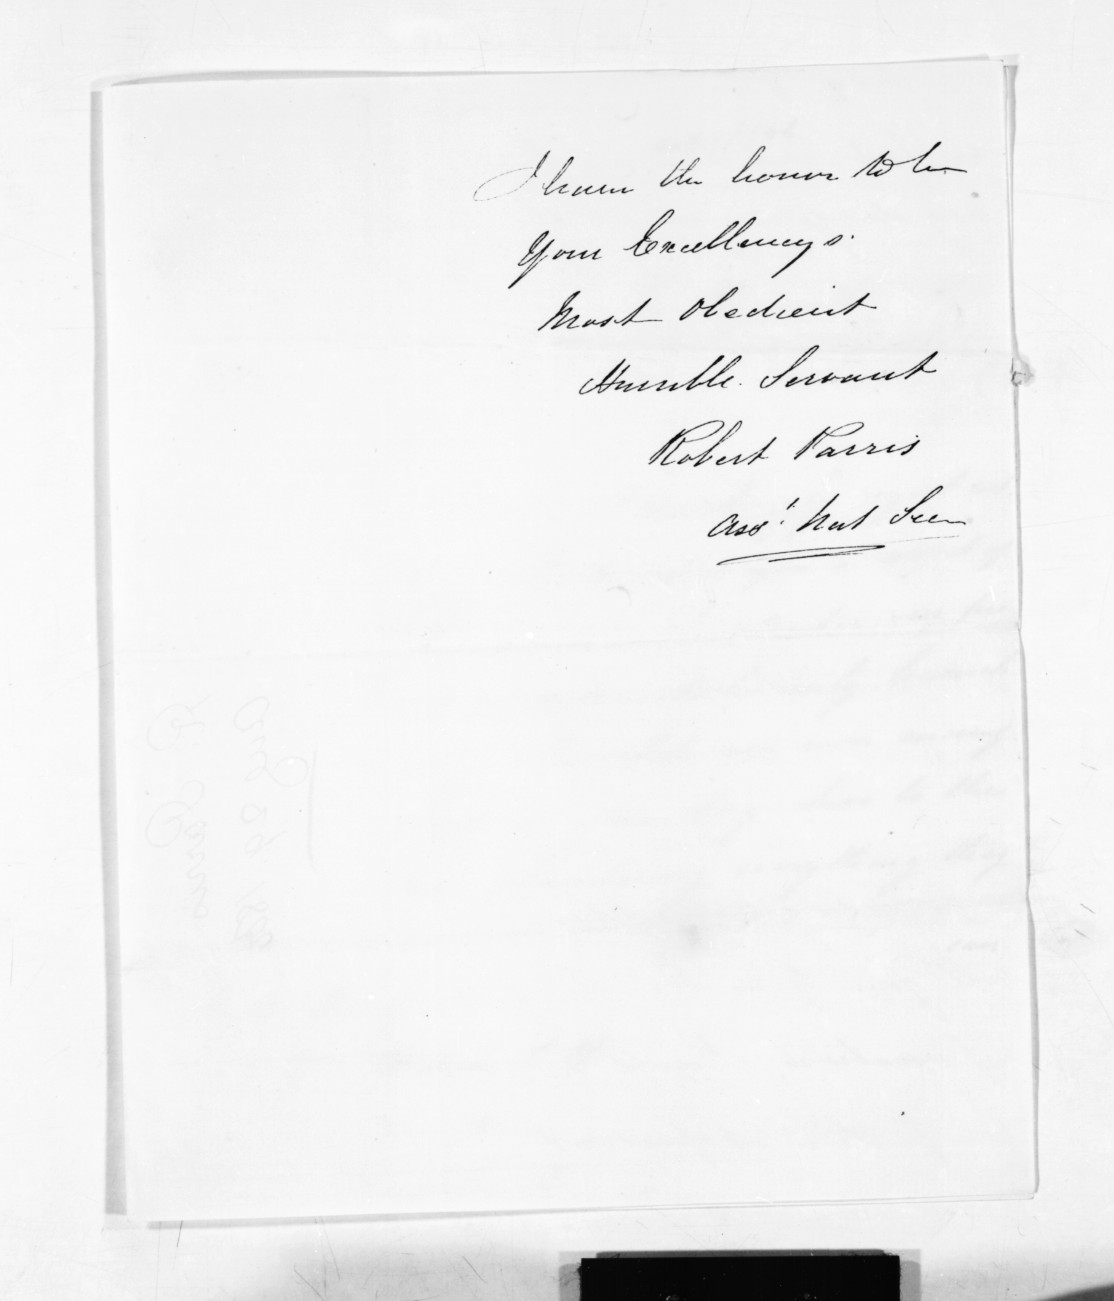 I have the honor to be
Your Excellencys
Most Obedient
Humble Servant
Robert Parris
Asst Nat Secr